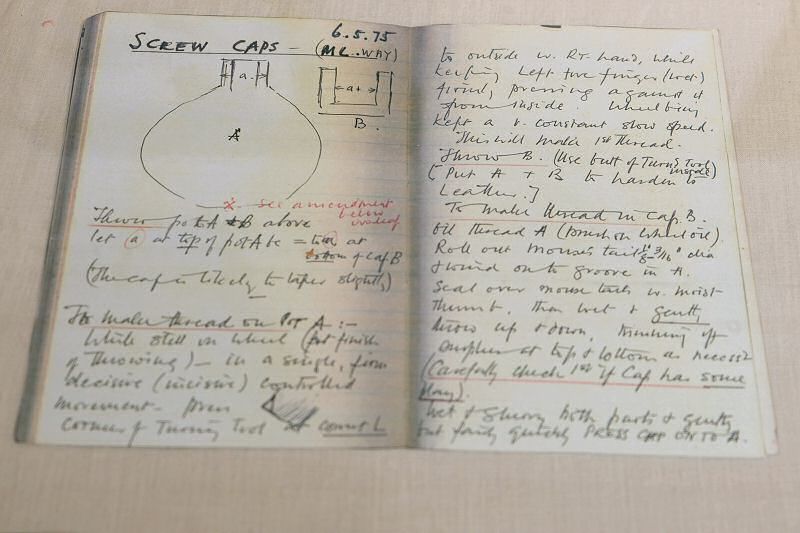 6.5.75
SCREW CAPS - (ML. WAY)
a
a+
B.
A
x - see amendment
below
overleaf
Throw pot A + B above
let a at top of pot A be = to a at
bottom of cap B
(The cap is likely to taper slightly)
To make thread on Pot A :-
While still on wheel (at finish
of Throwing) - in a single, firm
decisive (incisive) controlled
movement - press
corner of Turning Tool at correct L
to outside w. Rt hand, while
keeping Left fore finger (wet)
firmly pressing against it
from inside. Wheel being
kept a v. constant slow speed.
This will make 1st Thread.
Throw B. (Use butt of Turning Tool
inside)
[Put A + B to harden to
Leather.]
To make thread in Cap B.
Oil thread A (brush on wheel oil).
Roll out mouse's tail 1/8" - 3/16" dia
& wind on to groove in A.
Seal over mouse tails w. moist
thumb, then wet & gently
throw up & down, trimming off
surplus at top & bottom as necess.
(Carefully check 1st if Cap has some
play).
Wet & slurry both parts & gently
but fairly quickly PRESS CAP ON TO A.